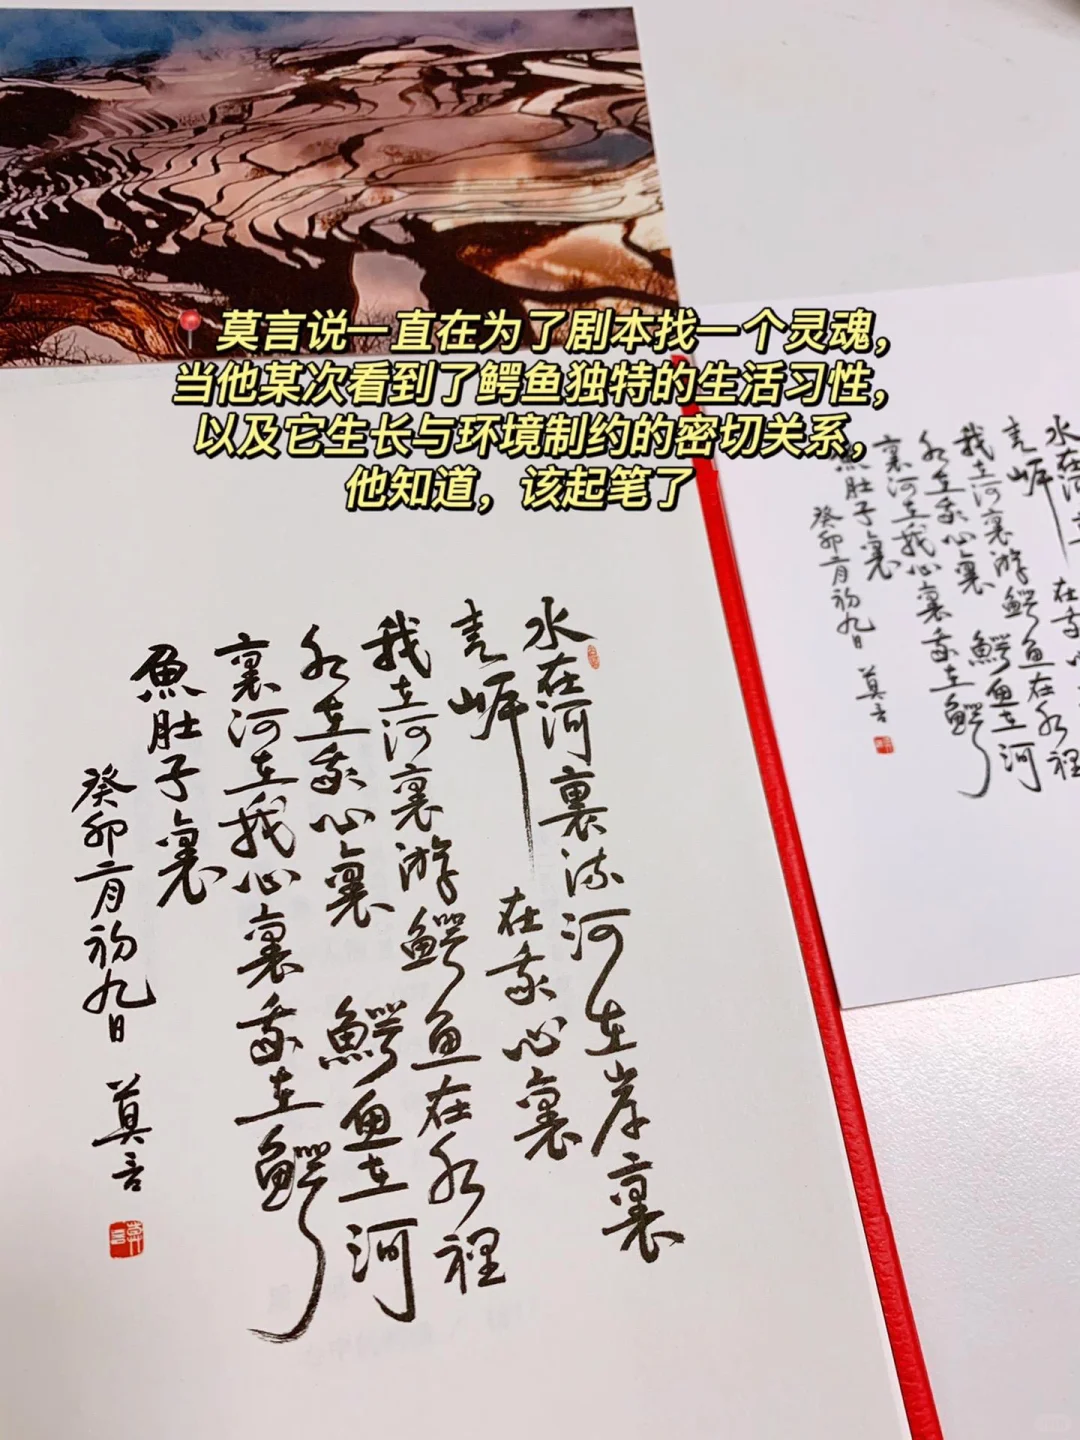 莫言说一直在为了剧本找一个灵魂，
当他某次看到了鳄鱼独特的生活习性，
以及它生长与环境制约的密切关系，
他知道，该起笔了
水在河裏流河在岸裏
走岸在我心裏
我在河裏游鰐鱼在水裡
水在我心裏鰐魚在河
裏河在我心裏我在鰐
魚肚子裏
癸卯二月初九日 莫言
水在河
走岸在我
我在河裏游鰐鱼在水裡
水在我心裏鰐魚在河
裏河在我心裏我在鰐
魚肚子裏
癸卯二月初九日 莫言